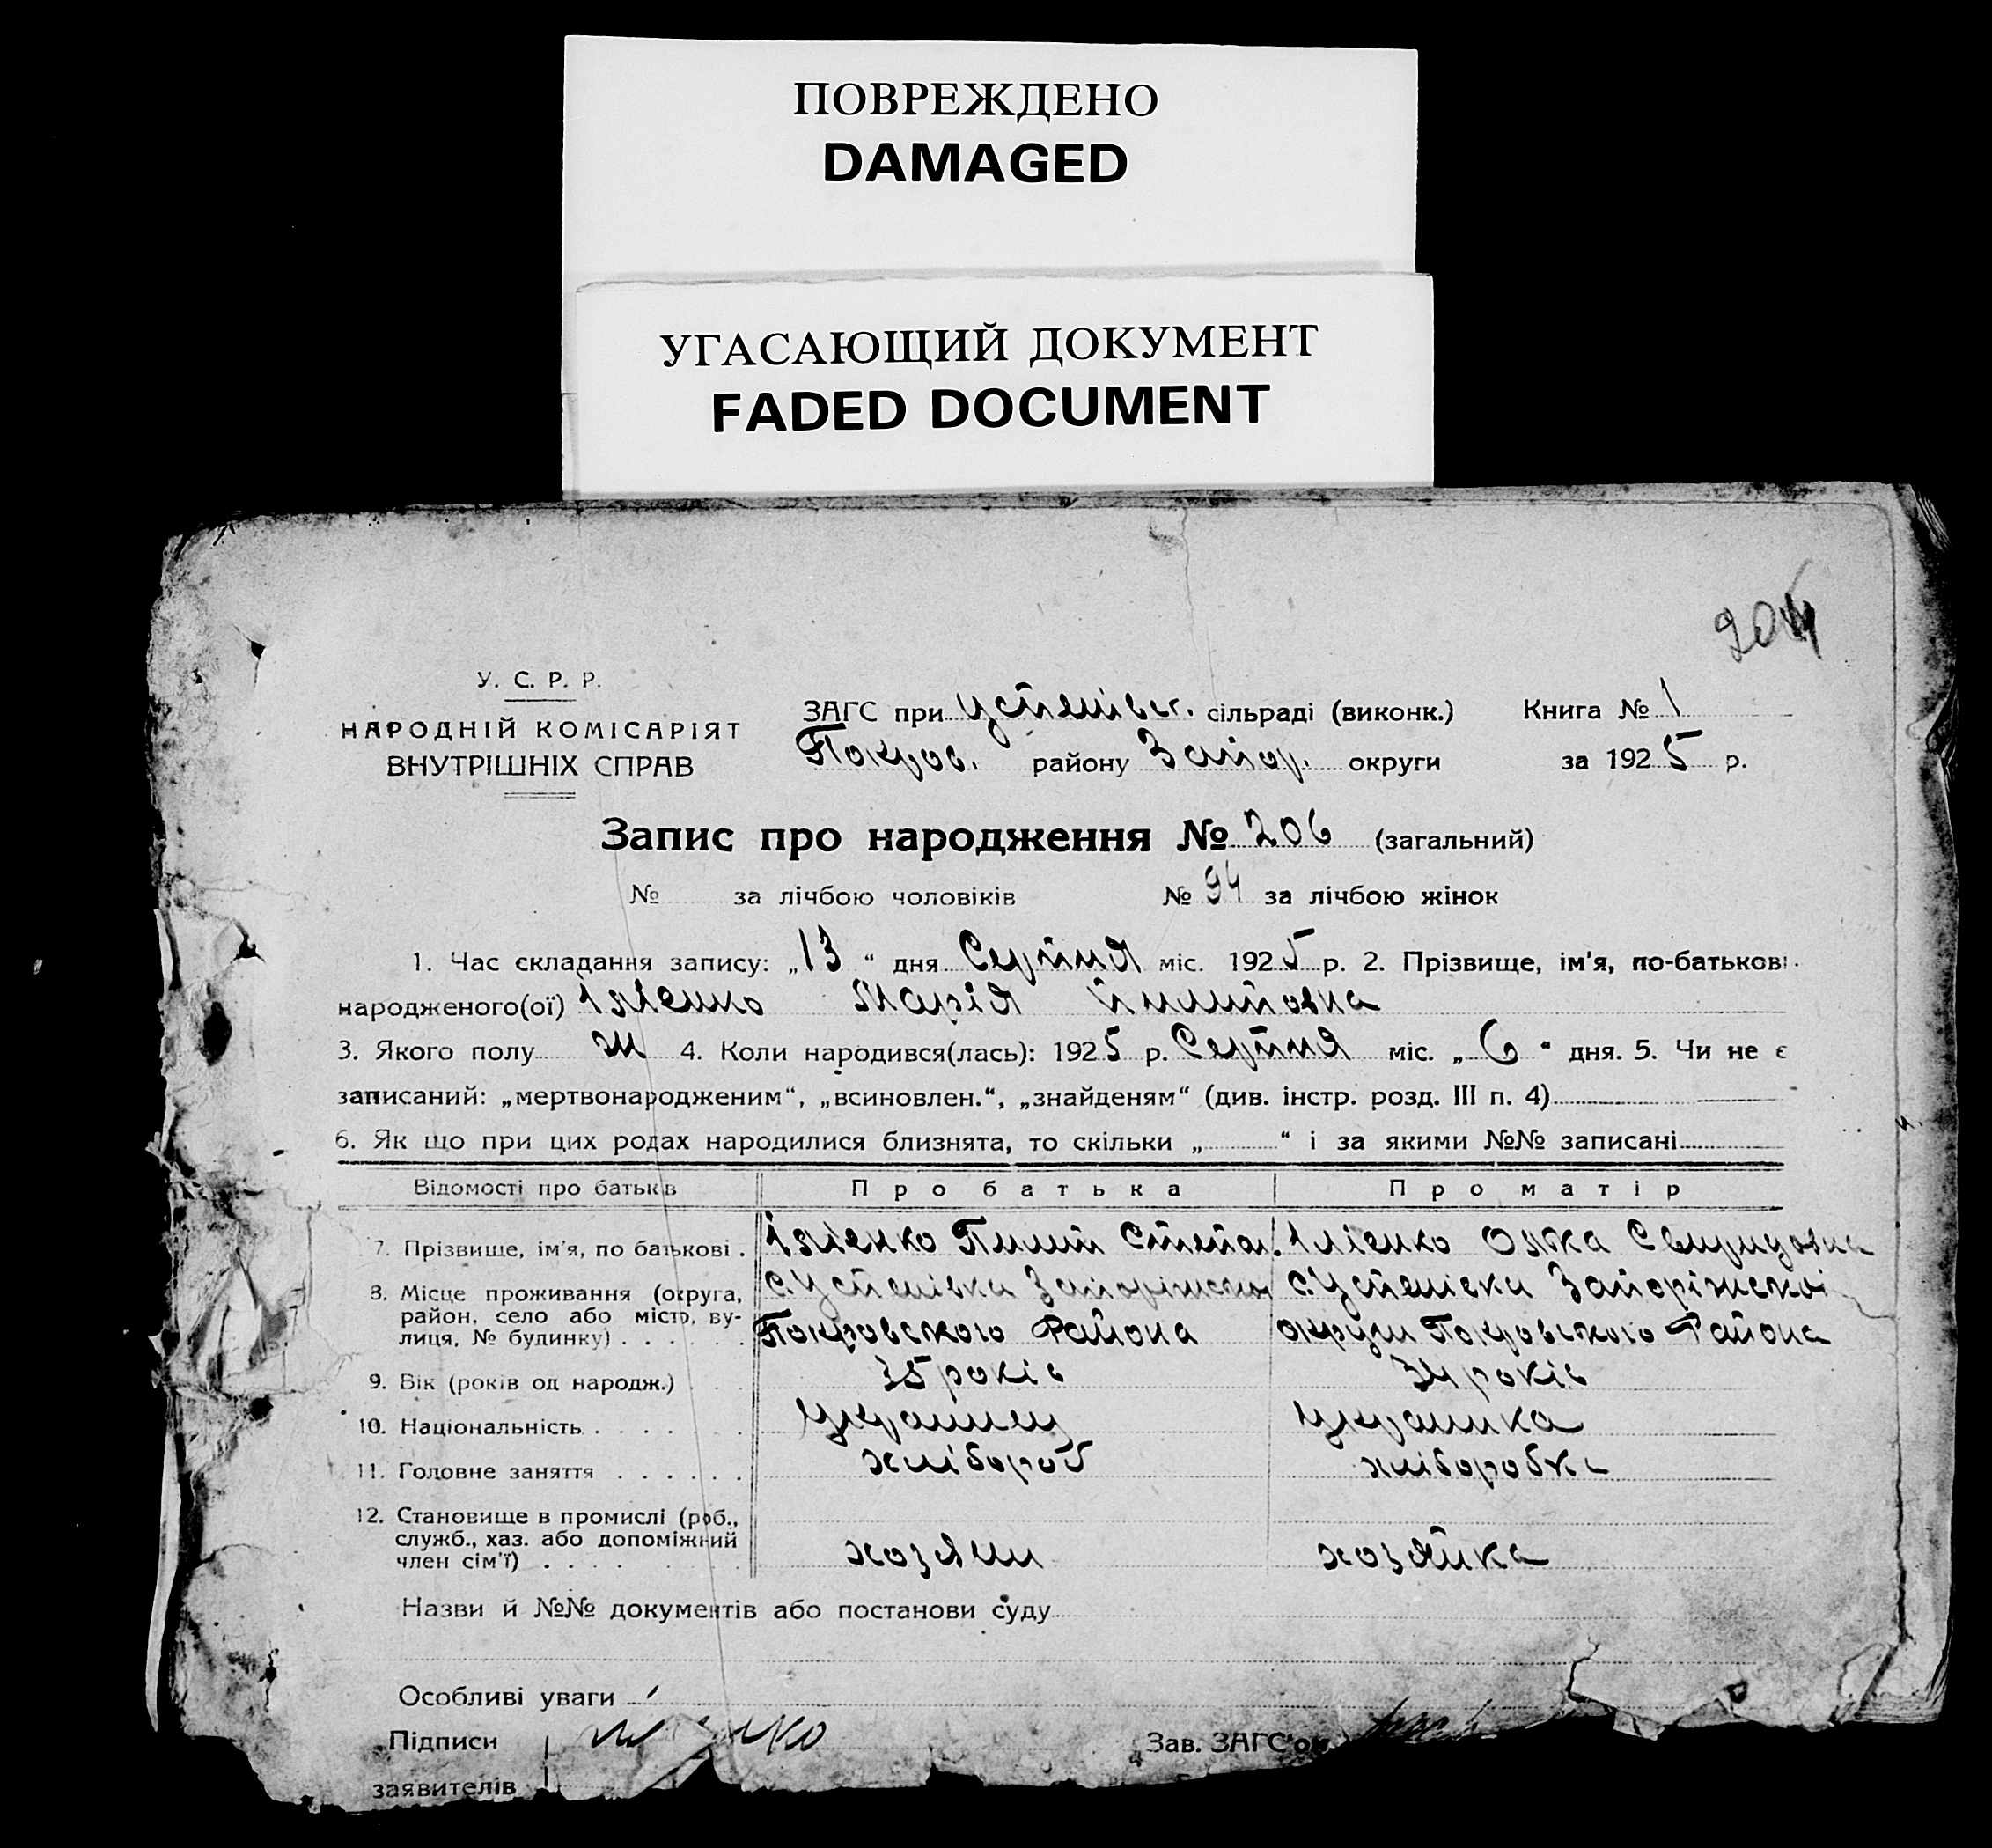 ПОВРЕЖДЕНО
DAMAGED
УГАСАЮЩИЙ ДОКУМЕНТ
FADED DOCUMENT
У. С. Р. Р.
НАРОДНІЙ КОМІСАРІЯТ
ВНУТРІШНІХ СПРАВ
ЗАГС при Успенівськ. сільраді (виконк.) Книга № 1
Покров. району Запор. округи за 1925 р.
Запис про народження № 206 (загальний)
№ за лічбою чоловіків № 94 за лічбою жінок
1. Час складання запису: „13“ дня Серпня міс. 1925 р. 2. Прізвище, ім'я, по-батькові
народженого(ої) Ілієнко Марія Пилиповна
3. Якого полу ж 4. Коли народився(лась): 1925 р. Серпня міс. „6“ дня. 5. Чи не є
записаний: „мертвонародженим“, „всиновлен.“, „знайденям“ (див. інстр. розд. III п. 4)
6. Як що при цих родах народилися близнята, то скільки „ “ і за якими №№ записані
Відомості про батьків Про батька Про матір
7. Прізвище, ім'я, по батькові . Ілієнко Пилип Степан. Ілієнко Свиридовна
8. Місце проживання (округа, с. Успенівка Запоріжської с. Успенівки Запоріжскої
район, село або місто, ву-
лиця, № будинку) . . . . . . Покровського Района округи Покровського Района
9. Вік (років од народж.) 35 років 34 років
10. Національність . . . . . Українец Українка
11. Головне заняття . . . . . . хлібороб хлиборобка
12. Становище в промислі (роб.,
служб., хаз. або допоміжний
член сім'ї) . . . . хозяин хозяйка
Назви й №№ документів або постанови суду
Особливі уваги
Підписи Зав. ЗАГС'ом
заявителів